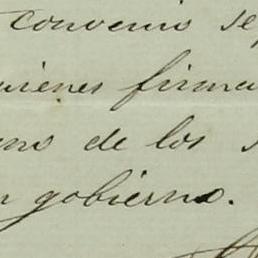 convenio se
uienes firma
no de los
n gobierno.